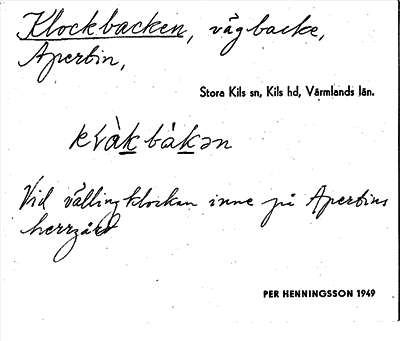 Klockbacken, vägbacke,
Aperbin,
Stora Kils sn, Kils hd, Värmlands län.
klàkbàkən
Vid vällingklockan inne på Aperbins
herrgård
PER HENNINGSSON 1949